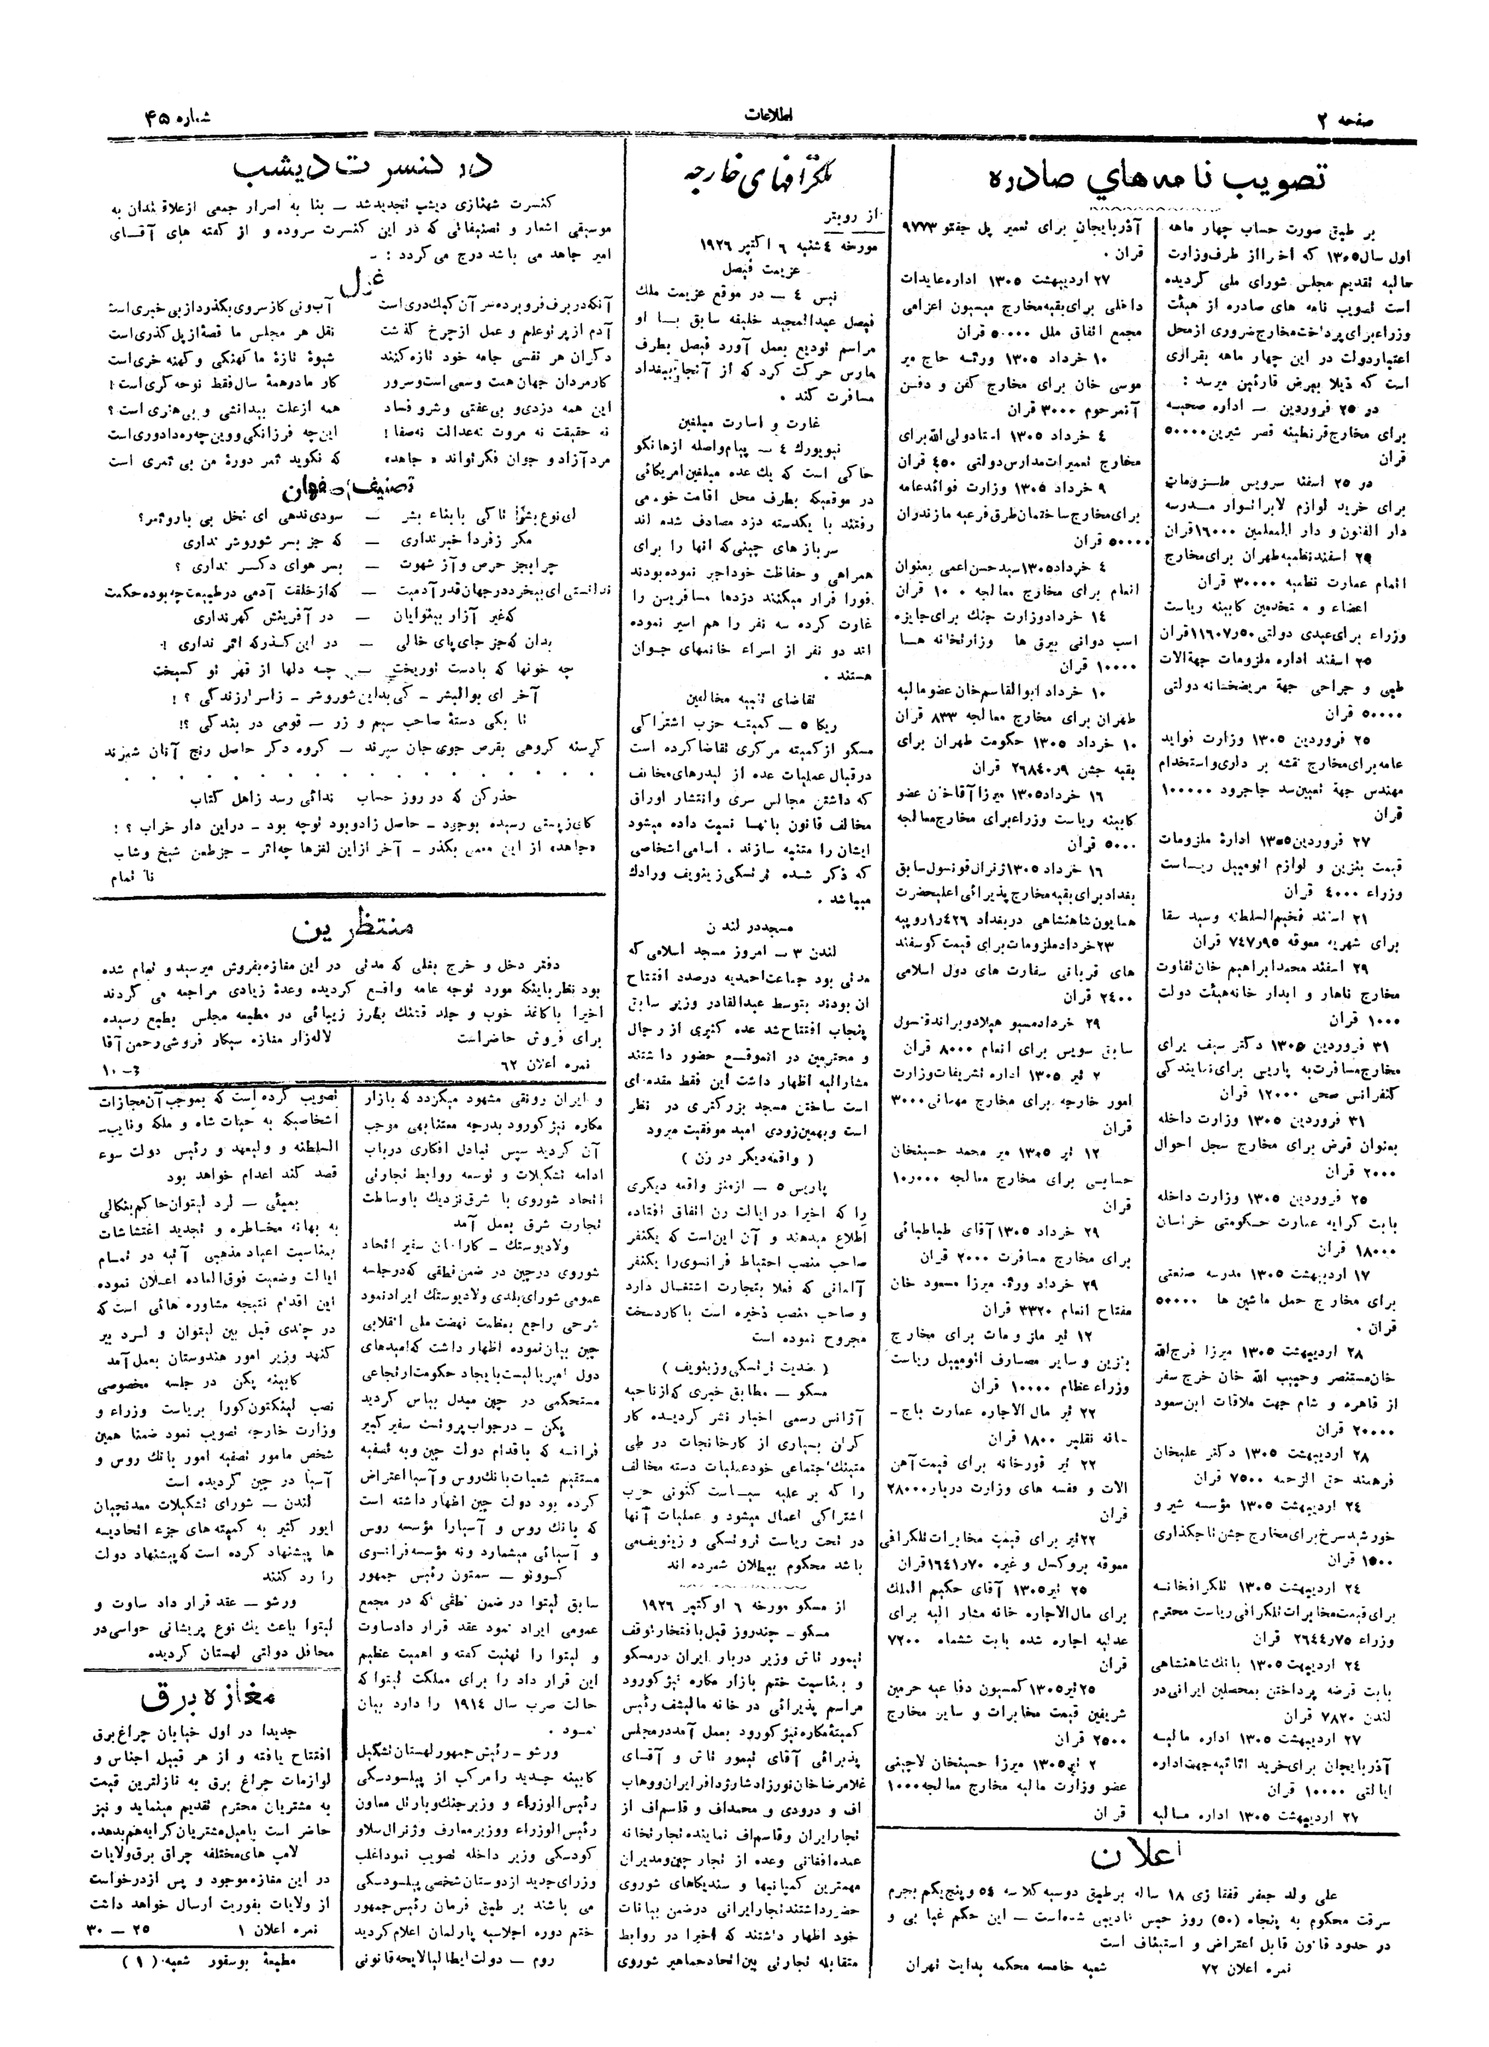 صفحه ۲
اطلاعات
شماره ۴۵
تصویب نامه‌های صادره
بر طبق صورت حساب چهار ماهه
اول سال ۱۳۰۵ که اخیرا از طرف وزارت
مالیه تقدیم مجلس شورای ملی گردیده
است تصویب نامه های صادره از هیئت
وزراء برای پرداخت مخارج ضروری از محل
اعتبار دولت در این چهار ماهه بقراری
است که ذیلا بعرض قارئین میرسد :
در ۲۵ فروردین — اداره صحیه
برای مخارج قرنطینه قصر شیرین ۵۰۰۰۰
قران
در ۲۵ اسفند سرویس ملزومات
برای خرید لوازم لابراتوار مدرسه
دار الفنون و دار المعلمین ۱۶۰۰۰ قران
۲۹ اسفند نظمیه طهران برای مخارج
اتمام عمارت نظمیه ۳۰۰۰۰ قران
اعضاء و مستخدمین کابینه ریاست
وزراء برای عیدی دولتی ۱۱۶۰۷٫۵۰ قران
۲۵ اسفند اداره ملزومات جهة الات
طبی و جراحی جهة مریضخانه دولتی
۵۰۰۰۰ قران
۲۵ فروردین ۱۳۰۵ وزارت فواید
عامه برای مخارج نقشه بر داری و استخدام
مهندس جهة تعیین سد جاجرود ۱۰۰۰۰۰
قران
۲۷ فروردین ۱۳۰۵ ادارۀ ملزومات
قیمت بنزین و لوازم اتومبیل ریاست
وزراء ۴۰۰۰ قران
۲۱ اسفند فخیم السلطنه و سید سقا
برای شهریه معوقه ۷۴۷٫۹۵ قران
۲۹ اسفند محمد ابراهیم خان تفاوت
مخارج ناهار و ابدار خانه هیئت دولت
۱۰۰۰ قران
۳۱ فروردین ۱۳۰۵ دکتر سیف برای
مخارج مسافرت به پاریس برای نمایندگی
کنفرانس صحی ۱۲۰۰۰ قران
۳۱ فروردین ۱۳۰۵ وزارت داخله
بعنوان قرض برای مخارج سجل احوال
۲۰۰۰ قران
۲۵ فروردین ۱۳۰۵ وزارت داخله
بابت کرایه عمارت حکومتی خراسان
۱۸۰۰۰ قران
۱۷ اردیبهشت ۱۳۰۵ مدرسه صنعتی
برای مخارج حمل ماشین ها ۵۰۰۰۰
قران .
۲۸ اردیبهشت ۱۳۰۵ میرزا فرج الله
خان مستنصر و حبیب الله خان خرج سفر
از قاهره و شام جهت ملاقات ابن سعود
۲۰۰۰۰ قران
۲۸ اردیبهشت ۱۳۰۵ دکتر علیخان
فرهمند حق الزحمه ۷۵۰۰ قران
۲۴ اردیبهشت ۱۳۰۵ مؤسسه شیر و
خورشید سرخ برای مخارج جشن تاجگذاری
۱۵۰۰ قران
۲۴ اردیبهشت ۱۳۰۵ تلگرافخانه
برای قیمت مخابرات تلگرافی ریاست محترم
وزراء ۲۶۴۴٫۷۵ قران
۲۴ اردیبهت ۱۳۰۵ بانک شاهنشاهی
بابت قرضه پرداختن بمحصلین ایرانی در
لندن ۷۸۲۰ قران
۲۷ اردیبهشت ۱۳۰۵ اداره مالیه
آذربایجان برای خرید اثاثیه جهت اداره
ایالتی ۱۰۰۰۰ قران
۲۷ اردیبهشت ۱۳۰۵ اداره مالیه
آذربایجان برای تعمیر پل جفتو ۹۷۷۳
قران .
۲۷ اردیبهشت ۱۳۰۵ اداره عایدات
داخلی برای بقیه مخارج میسیون اعزامی
مجمع اتفاق ملل ۵۰۰۰۰ قران
۱۰ خرداد ۱۳۰۵ ورثه حاج میر
موسی خان برای مخارج کفن و دفن
آنمرحوم ۳۰۰۰ قران
۴ خرداد ۱۳۰۵ استاد ولی الله برای
مخارج تعمیرات مدارس دولتی ۴۵۰ قران
۹ خرداد ۱۳۰۵ وزارت فوائد عامه
برای مخارج ساختمان طرق فرعیه مازندران
۵۰۰۰۰ قران
۴ خرداد ۱۳۰۵ سید حسن اعمی بعنوان
انعام برای مخارج معالجه ۱۰۰ قران
۱۴ خرداد وزارت جنگ برای جایزه
اسب دوانی بیرق ها وزارتخانه ها
۱۰۰۰۰ قران
۱۰ خرداد ابوالقاسم خان عضو مالیه
طهران برای مخارج معالجه ۸۳۳ قران
۱۰ خرداد ۱۳۰۵ حکومت طهران برای
بقیه جشن ۲۶۸۴۰٫۹ قران
۱۶ خرداد ۱۳۰۵ میرزا آقاخان عضو
کابینه ریاست وزراء برای مخارج معالجه
۵۰۰۰ قران
۱۶ خرداد ۱۳۰۵ ژنرال قونسول سابق
بغداد برای بقیه مخارج پذیرائی اعلیحضرت
همایون شاهنشاهی در بغداد ۱٫۴۲۶ روپیه
۲۳ خرداد ملزومات برای قیمت گوسفند
های قربانی سفارت های دول اسلامی
۲۴۰۰ قران
۲۹ خرداد مسیو هیلاد و براند قنسول
سابق سویس برای انعام ۸۰۰۰ قران
۲ تیر ۱۳۰۵ اداره تشریفات وزارت
امور خارجه برای مخارج مهمانی ۳۰۰۰
قران
۱۲ تیر ۱۳۰۵ میر محمد حسینخان
حسابی برای مخارج معالجه ۱۰٫۰۰۰
قران
۲۹ خرداد ۱۳۰۵ آقای طباطبائی
برای مخارج مسافرت ۲۰۰۰ قران
۲۹ خرداد ورثه میرزا مسعود خان
مفتاح انعام ۳۳۲۰ قران
۱۲ تیر ملزومات برای مخارج
بنزین و سایر مصارف اتومبیل ریاست
وزراء عظام ۱۰۰۰۰ قران
۲۲ تیر مال الاجاره عمارت باج‌ـ
ـانه نقلیر ۱۸۰۰ قران
۲۲ تیر قورخانه برای قیمت آهن
الات و قفسه های وزارت دربار ۲۸۰۰۰
قران
۲۲ تیر برای قیمت مخابرات تلگرافی
معوقه بروکسل و غیره ۱۶۴۱٫۷۰ قران
۲۵ تیر ۱۳۰۵ آقای حکیم الملک
برای مال الاجاره خانه مشار الیه برای
عدلیه اجاره شده بابت ششماه ۷۲۰۰
قران
۲۵ تیر ۱۳۰۵ کمسیون دفاعیه حرمین
شریفین قیمت مخابرات و سایر مخارج
۲۵۰۰ قران
۲ تیر ۱۳۰۵ میرزا حسینخان لاچینی
عضو وزارت مالیه مخارج معالجه ۱۰۰۰
قران
اعلان
علی ولد جعفر قفقازی ۱۸ ساله بر طبق دوسیه کلاسه ۵۴ و پنج یکم بجرم
سرقت محکوم به پنجاه (۵۰) روز حبس تادیبی شده است — این حکم غیابی و
در حدود قانون قابل اعتراض و استیناف است
نمره اعلان ۷۲ شعبه خامسه محکمه بدایت تهران
تلگرافهای خارجه
از رویتر
مورخه ٤ شنبه ٦ اکتبر ۱۹۲٦
عزیمت فیصل
نیس ٤ — در موقع عزیمت ملک
فیصل عبدالمجید خلیفه سابق با او
مراسم تودیع بعمل آورد فیصل بطرف
مارس حرکت کرد که از آنجا ببغداد
مسافرت کند .
غارت و اسارت مبلغین
نیویورک ٤ — پیام واصله از هانکو
حاکی است که یک عده مبلغین امریکائی
در موقعیکه بطرف محل اقامت خود می
رفتند با یکدسته دزد مصادف شده اند
سرباز های چینی که انها را برای
همراهی و حفاظت خود اجیر نموده بودند
فورا فرار میکنند دزدها مسافرین را
غارت کرده سه نفر را هم اسیر نموده
اند دو نفر از اسراء خانمهای جوان
هستند .
تقاضای تنبیه مخالفین
ریگا ٥ — کمیته حزب اشتراکی
مسکو از کمیته مرکزی تقاضا کرده است
در قبال عملیات عده از لیدرهای مخالف
که داشتن مجالس سری و انتشار اوراق
مخالف قانون بانها نسبت داده میشود
ایشان را متنبه سازند . اسامی اشخاصی
که ذکر شده ترتسکی زینویف و رادک
میباشد .
مسجد در لندن
لندن ۳ — امروز مسجد اسلامی که
مدتی بود جماعت احمدیه درصدد افتتاح
ان بودند بتوسط عبدالقادر وزیر سابق
پنجاب افتتاح شد عده کثیری از رجال
و محترمین در انموقع حضور داشتند
مشارالیه اظهار داشت این فقط مقدمه ای
است ساختن مسجد بزرگتری در نظر
است و بهمین زودی امید موفقیت میرود
( واقعه دیگر در رن )
پاریس ٥ — از منز واقعه دیگری
را که اخیرا در ایالت رن اتفاق افتاده
اطلاع میدهند و آن این است که یکنفر
صاحب منصب احتیاط فرانسوی را یکنفر
آلمانی که فعلا بتجارت اشتغال دارد
و صاحب منصب ذخیره است با کارد سخت
مجروح نموده است
( ضدیت ترتسکی و زینویف )
مسکو — مطابق خبری که از ناحیه
آژانس رسمی اخبار نشر گردیده کار
گران بسیاری از کارخانجات در طی
میتینگ اجتماعی خود عملیات دسته مخالف
را که بر علیه سیاست کنونی حزب
اشتراکی اعمال میشود و عملیات آنها
در تحت ریاست تروتسکی و زینویف می
باشد محکوم ببطلان شمرده اند
از مسکو مورخه ٦ اوکتبر ۱۹۲٦
مسکو — چند روز قبل با فتخار توقف
تیمور تاش وزیر دربار ایران در مسکو
و بمناسبت ختم بازار مکاره نیژکورود
مراسم پذیرائی در خانه مالیشف رئیس
کمیتۀ مکاره نیژکورود بعمل آمد در مجلس
پذیرائی آقای تیمور تاش و آقای
غلامرضا خان نورزاد شارژدافر ایران و وهاب
اف و درودی و محمداف و قاسم اف از
تجار ایران و قاسم اف نماینده تجارتخانه
عمده افغانی وعده از تجار چین و مدیران
مهمترین کمپانیها و سندیکاهای شوروی
حضور داشتند تجار ایرانی در ضمن بیانات
خود اظهار داشتند که اخیرا در روابط
متقابله تجارتی بین اتحاد جماهیر شوروی
در کنسرت دیشب
کنسرت شهنازی دیشب تجدید شد — بنا به اصرار جمعی از علاقمندان به
موسیقی اشعار و تصنیفاتی که در این کنسرت سروده و از گفته های آقای
امیر جاهد می باشد درج می گردد : ـ
غزل
آنکه در برف فرو برده سر آن کبک دری است آب ونی کاز سروی بگذرد از بی خبری است
آدم از پر تو علم و عمل از چرخ گذشت نقل هر مجلس ما قصۀ از پل گذری است
دگران هر نفسی جامه خود تازه کنند شیوۀ تازۀ ما کهنگی و کهنه خری است
کار مردان جهان همت و سعی است و سرور کار ما در همۀ سال فقط نوحه گری است !
این همه دزدی و بی عفتی و شر و فساد همه از علت بیدانشی و بی هنری است ؟
نه حقیقت نه مروت نه عدالت نه صفا ! این چه فرزانگی و وین چه ره دادوری است
مرد آزاد و جوان فکر تواند «جاهد» که نگوید ثمر دورۀ من بی ثمری است
تصنیف اصفهان
ای نوع بشر! تا کی با بناء بشر — سودی ندهی ای نخل بی بار و ثمر؟
مگر زفردا خبر نداری — که جز بسر شور و شر نداری
چرا بجز حرص و آز شهوت — بسر هوای دگر نداری ؟
ندانستی ای بیخرد در جهان قدر آدمیت — که از خلقت آدمی در طبیعت چه بوده حکمت
که غیر آزار بینوایان — در آفرینش گهر نداری
بدان که جز جای پای خالی — در این گذر که اثر نداری !
چه خونها که با دست تو ریخت — چه دلها از قهر تو گسیخت
آخر ای بوالبشر ـ کی بداین شور و شر ـ زاسرار زندگی ؟ !
تا بکی دستۀ صاحب سیم و زر — قومی در بندگی ؟!
گرسنه گروهی بقرص جوی جان سپرند — گروه دگر حاصل رنج آنان شمرند
حذر کن که در روز حساب ندائی رسد زاهل کتاب
کای زپستی رسیده بوجود ـ حاصل زاد و بود تو چه بود ـ در این دار خراب ؟ !
«جاهد» از این معمی بگذر ـ آخر از این لغزها چه اثر ـ جز طعن شیخ و شاب
نا تمام
منتظرین
دفتر دخل و خرج بغلی که مدتی در این مغازه بفروش میرسید و تمام شده
بود نظر باینکه مورد توجه عامه واقع گردیده و عدۀ زیادی مراجعه می کردند
اخیرا با کاغذ خوب و جلد قشنگ بطرز زیبائی در مطبعه مجلس بطبع رسیده
برای فروش حاضر است لاله زار مغازه سیگار فروشی رحمن آقا
نمره اعلان ۶۲ ۳ـ۱۰
و ایران رونقی مشهود میگردد که بازار
مکاره نیژکورود بدرجه معتنابهی موجب
آن گردید سپس تبادل افکاری در باب
ادامه تشکیلات و توسعه روابط تجارتی
اتحاد شوروی با شرق نزدیک با وساطت
تجارت شرق بعمل آمد
ولادیوستک — کاراخان سفیر اتحاد
شوروی در چین در ضمن نطقی که در جلسه
عمومی شورای بلدی ولادیوستک ایراد نمود
شرحی راجع بعظمت نهضت ملی انقلابی
چین بیان نموده اظهار داشت که امیدهای
دول امپریالیست با یجاد حکومت ارتجاعی
مستحکمی در چین مبدل بیاس گردید
پکن — در جواب پروتست سفیر کبیر
فرانسه که باقدام دولت چین و به تصفیه
مستقیم شعبات بانک روس و آسیا اعتراض
کرده بود دولت چین اظهار داشته است
که بانک روس و آسیا را مؤسسه روس
و آسیائی میشمارد و نه مؤسسه فرانسوی
کوونو — سمتون رئیس جمهور
سابق لیتوا در ضمن نطقی که در مجمع
عمومی ایراد نمود عقد قرار داد ساوت
و لیتوا را تهنیت گفته و اهمیت عظیم
این قرار داد را برای مملکت لیتوا که
حالت حرب سال ۱۹۱٤ را دارد بیان
نمود .
ورشو — رئیس جمهور لهستان تشکیل
کابینه جدید را مرکب از پیلسودسکی
رئیس الوزراء و وزیر جنگ و بارتل معاون
رئیس الوزراء و وزیر معارف و ژنرال سلاو
کودسکی وزیر داخله تصویب نمود اغلب
وزرای جدید از دوستان شخصی پیلسودسکی
می باشند بر طبق فرمان رئیس جمهور
ختم دوره اجلاسیه پارلمان اعلام گردید
روم — دولت ایطالیا لایحه قانونی
تصویب کرده است که بموجب آن مجازات
اشخاصیکه به حیات شاه و ملکه و نایب‌ـ
السلطنه و ولیعهد و رئیس دولت سوء
قصد کنند اعدام خواهد بود
بمبئی — لرد لیتوان حاکم بنگالی
به بهانه مخاطره و تجدید اغتشاشات
بمناسبت اعیاد مذهبی آتیه در تمام
ایالت وضعیت فوق العاده اعلان نموده
این اقدام نتیجه مشاوره هائی است که
در چندی قبل بین لیتوان و لرد بیر
کنهد وزیر امور هندوستان بعمل آمد
کابینه پکن در جلسه مخصوصی
نصب لینکتون کورا بریاست وزراء و
وزارت خارجه تصویب نمود ضمنا همین
شخص مامور تصفیه امور بانک روس و
آسیا در چین گردیده است
لندن — شورای تشکیلات معدنچیان
ایور کثیر به کمیته های جزء اتحادیه
ها پیشنهاد کرده است که پیشنهاد دولت
را رد کنند
ورشو — عقد قرار داد ساوت و
لیتوا باعث یک نوع پریشانی حواسی در
محافل دولتی لهستان گردیده
مغازه برق
جدیدا در اول خیابان چراغ برق
افتتاح یافته و از هر قبیل اجناس و
لوازمات چراغ برق به نازلترین قیمت
به مشتریان محترم تقدیم مینماید و نیز
حاضر است بامیل مشتریان کرایه هم بدهد.
لامپ های مختلفه چراق برق ولایات
در این مغازه موجود و پس از درخواست
از ولایات بفوریت ارسال خواهد داشت
نمره اعلان ۱ ۲۵ — ۳۰
مطبعۀ بوسفور شعبه (۱)